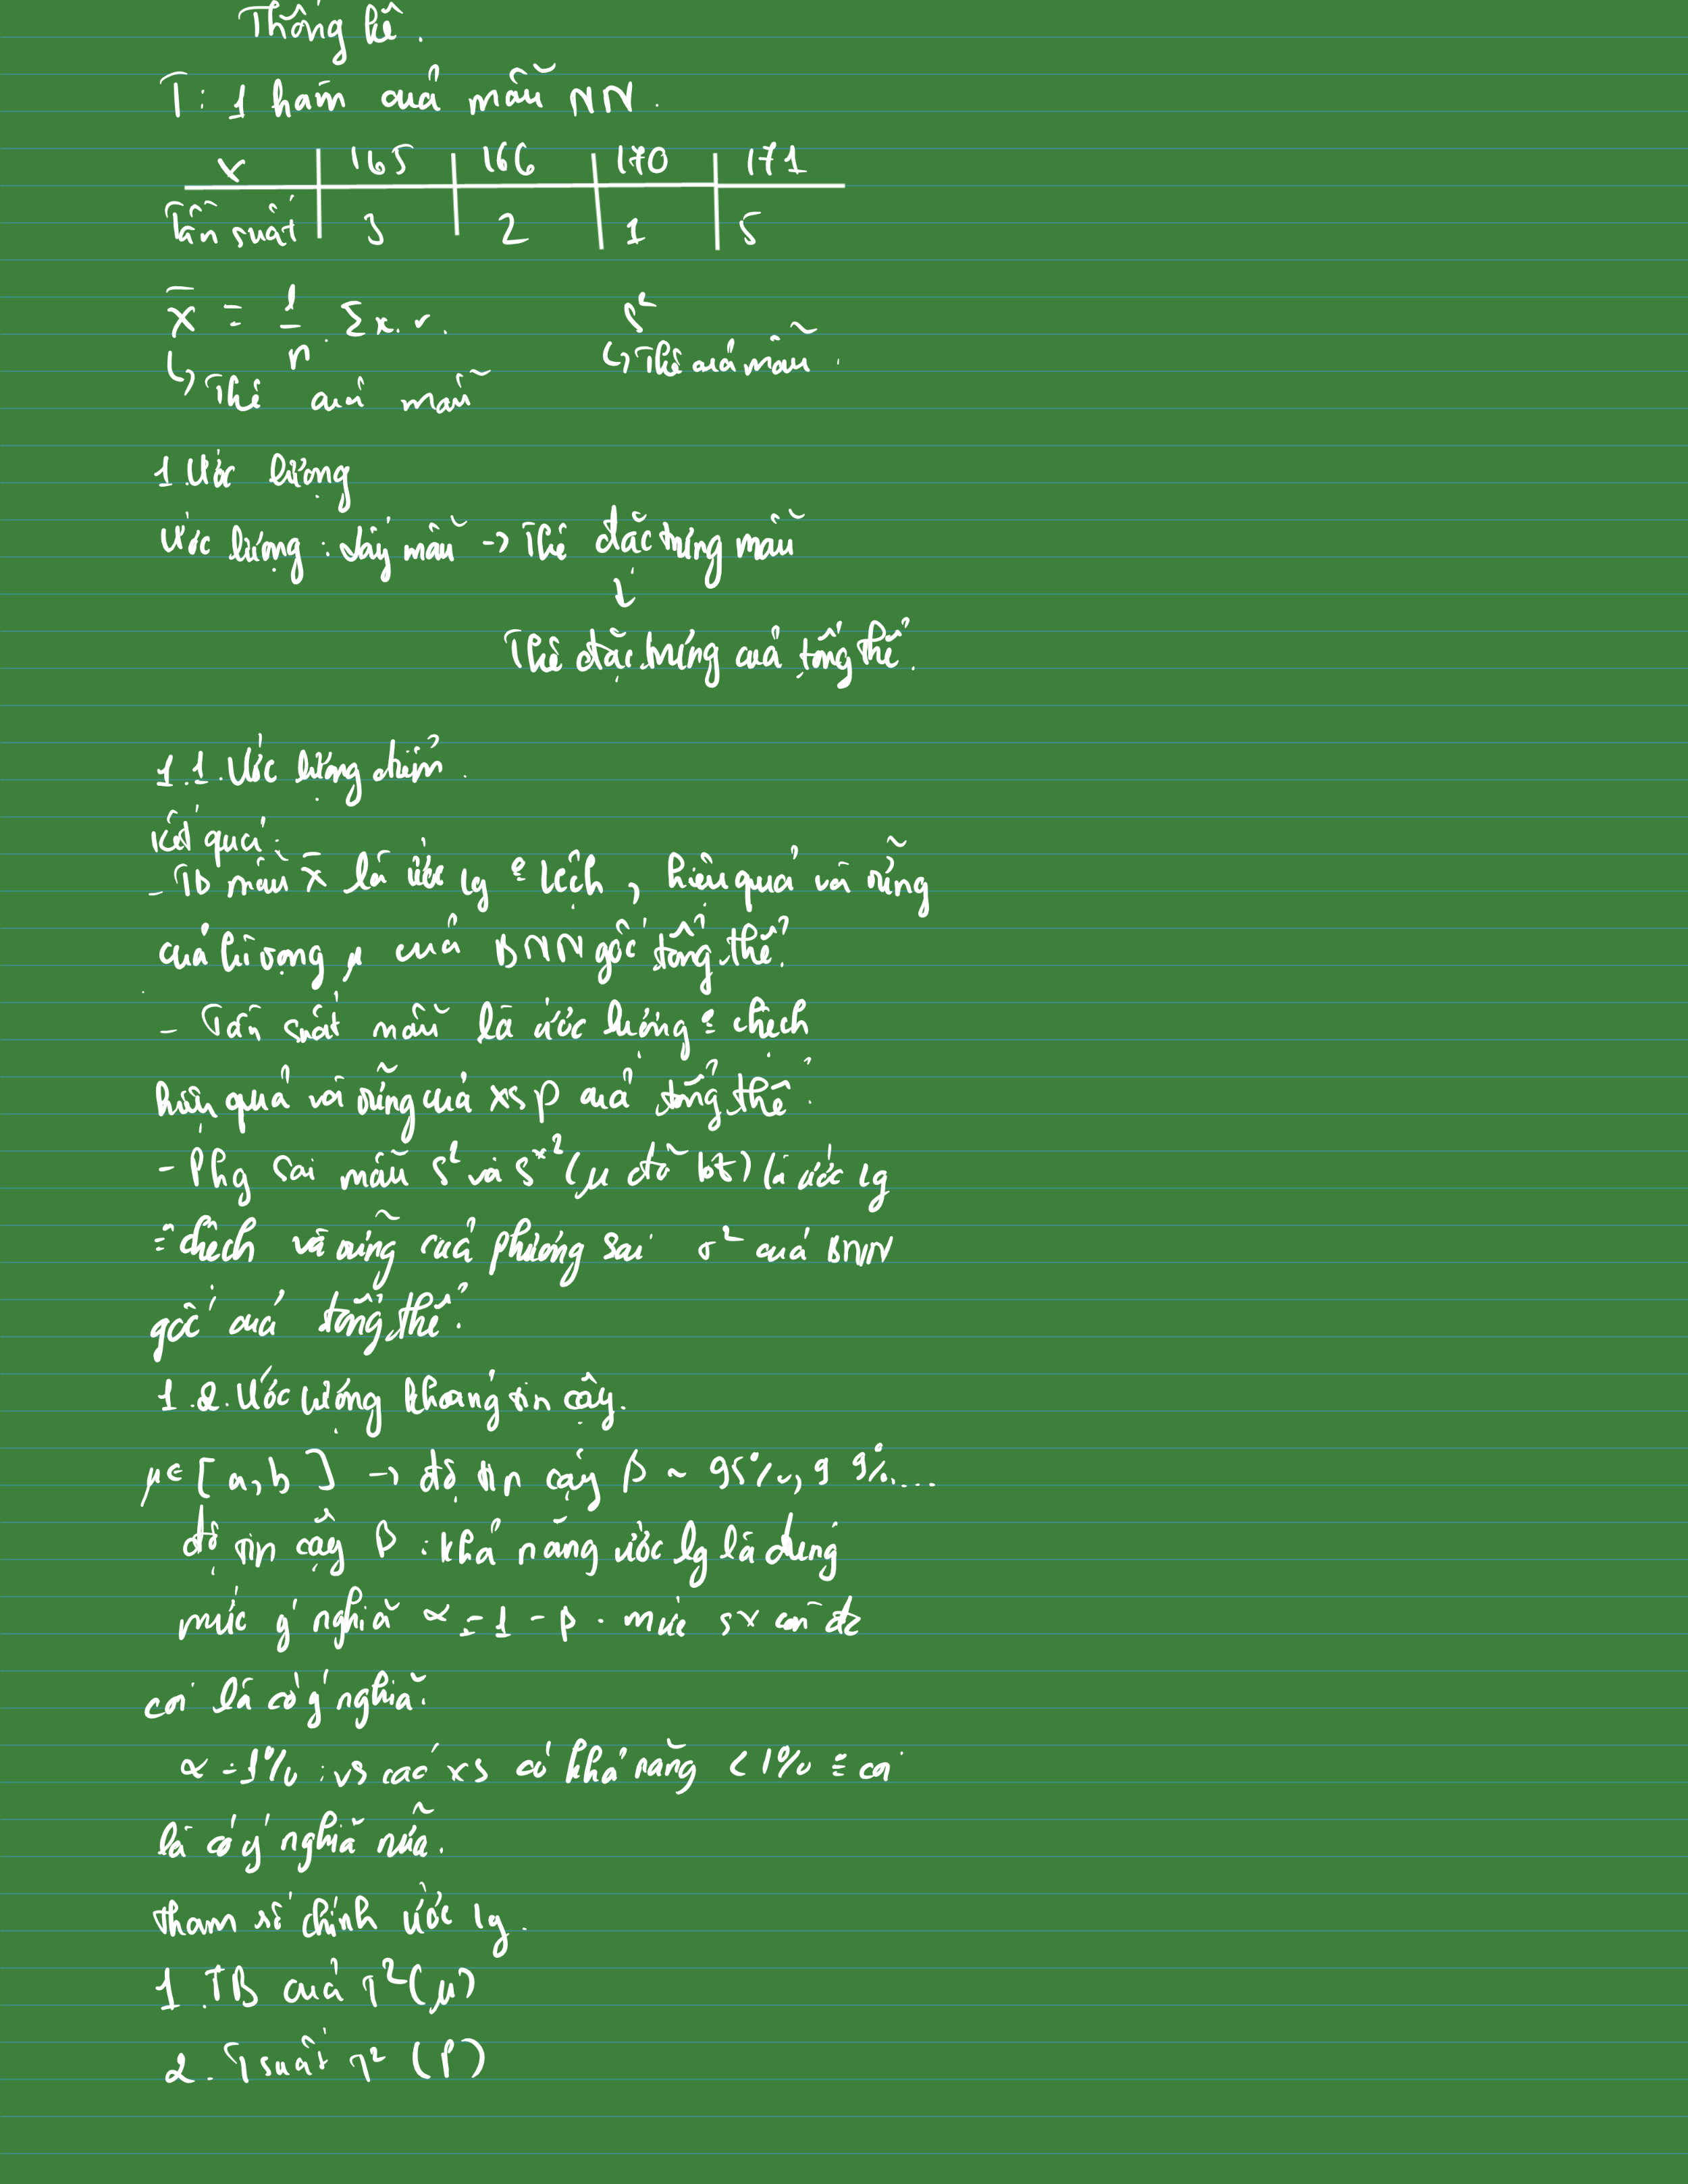 Thống kê.
T: 1 hàm của mẫu NN.
x 165 166 170 171
Tần suất 3 2 1 5
x̄ = 1/n . Σx.r. s²
↳ Tkê của mẫu ↳ Tkê của mẫu.
1. Ước lượng
Ước lượng : lấy mẫu → Tkê đặc trưng mẫu
↓
Tkê đặc trưng của tổng thể.
1.1. Ước lượng điểm.
Kết quả:
- TB mẫu x̄ là ước lg chệch, hiệu quả và vững
của kì vọng μ của BNN gốc tổng thể.
- Tần suất mẫu là ước lượng chệch
hiệu quả và vững của xs p của tổng thể.
- Phg sai mẫu s² và s*² (μ đã bt) là ước lg
chệch và vững của phương sai σ² của BNN
gốc của tổng thể.
1.2. Ước lượng khoảng tin cậy.
μ ∈ [a, b] → độ tin cậy β ~ 95%, 99%....
độ tin cậy β : khả năng ước lg là đúng
mức ý nghĩa α = 1 - β . mức sx còn đc
coi là có ý nghĩa.
α = 1% : vs các xs có khả năng < 1% coi
là có ý nghĩa nữa.
tham số chính ước lg.
1. TB của T² (μ)
2. T suất T² (P)